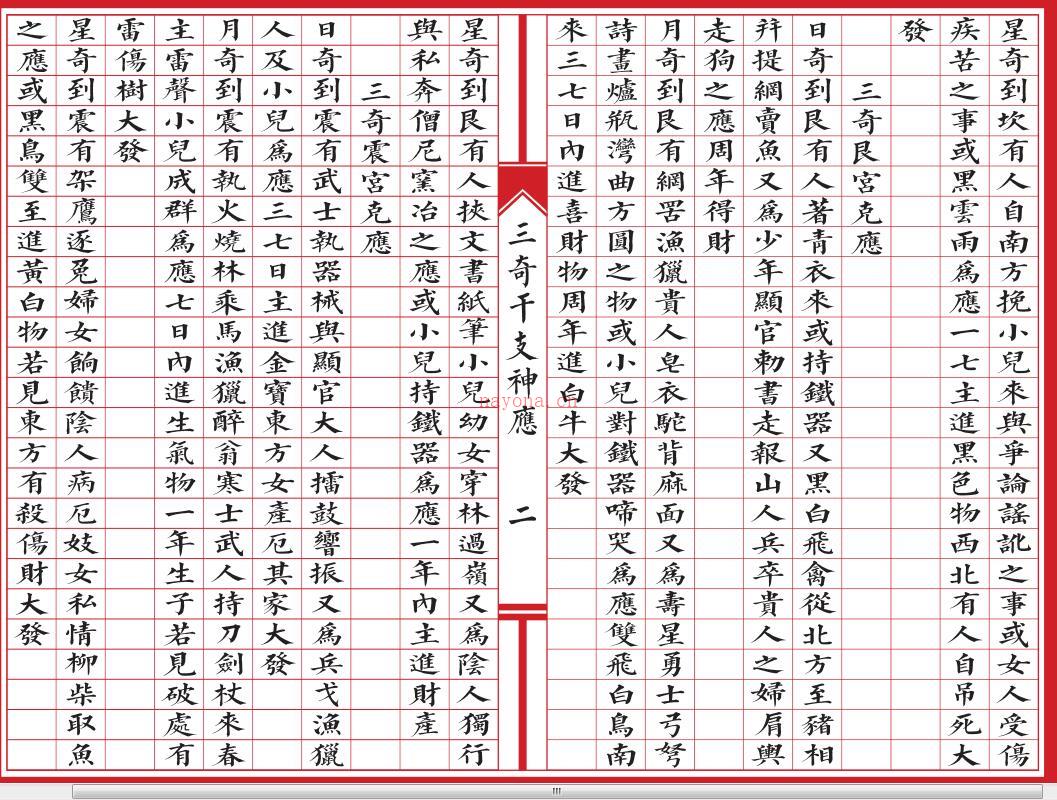 星奇到坎有人自南方挽小兒來與爭論謠訛之事或女人受傷
疾苦之事或黑雲雨為應一七主進黑色物西北有人自吊死大
發
三奇艮宮克應
日奇到艮有人著青衣來或持鐵器又黑白飛禽從北方至豬相
拜提網賣魚又為少年顯官勑書走報山人兵卒貴人之婦肩輿
走狗之應周年得財
月奇到艮有網罟漁獵貴人皂衣駝背麻面又為壽星勇士弓弩
詩畫爐瓶灣曲方圓之物或小兒對鐵器啼哭為應雙飛白鳥南
來三七日內進喜財物周年進白牛大發
三奇干支神應 二
星奇到艮有人挾文書紙筆小兒幼女穿林過嶺又為陰人獨行
與私奔僧尼窯冶之應或小兒持鐵器為應一年內主進財產
三奇震宮克應
日奇到震有武士執器械與顯官大人擂鼓響振又為兵戈漁獵
人及小兒為應三七日主進金寶東方女產厄其家大發
月奇到震有執火燒林乘馬漁獵醉翁寒士武人持刀劍杖來春
主雷聲小兒成群為應七日內進生氣物一年生子若見破處有
雷傷樹大發
星奇到震有架鷹逐兔婦女餉饋陰人病厄妓女私情柳柴取魚
之應或黑鳥雙至進黃白物若見東方有殺傷財大發
nayona.cn